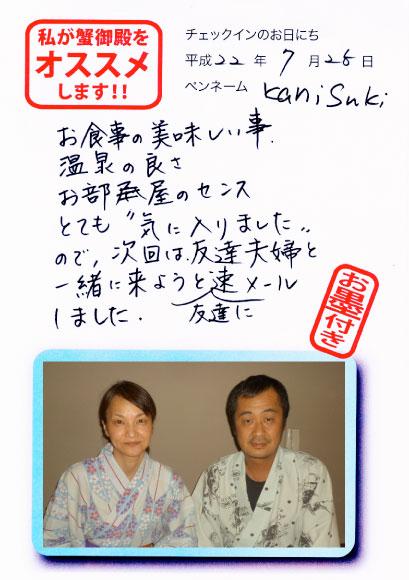 私が蟹御殿を
オススメ
します!!
チェックインのお日にち
平成22年7月26日
ペンネーム kaniSuki
お食事の美味しい事.
温泉の良さ
お部屋のセンス
とても〝気に入りました〟
ので,次回は、友達夫婦と
一緒に来ようと速メール
友達に
しました.
お墨付き